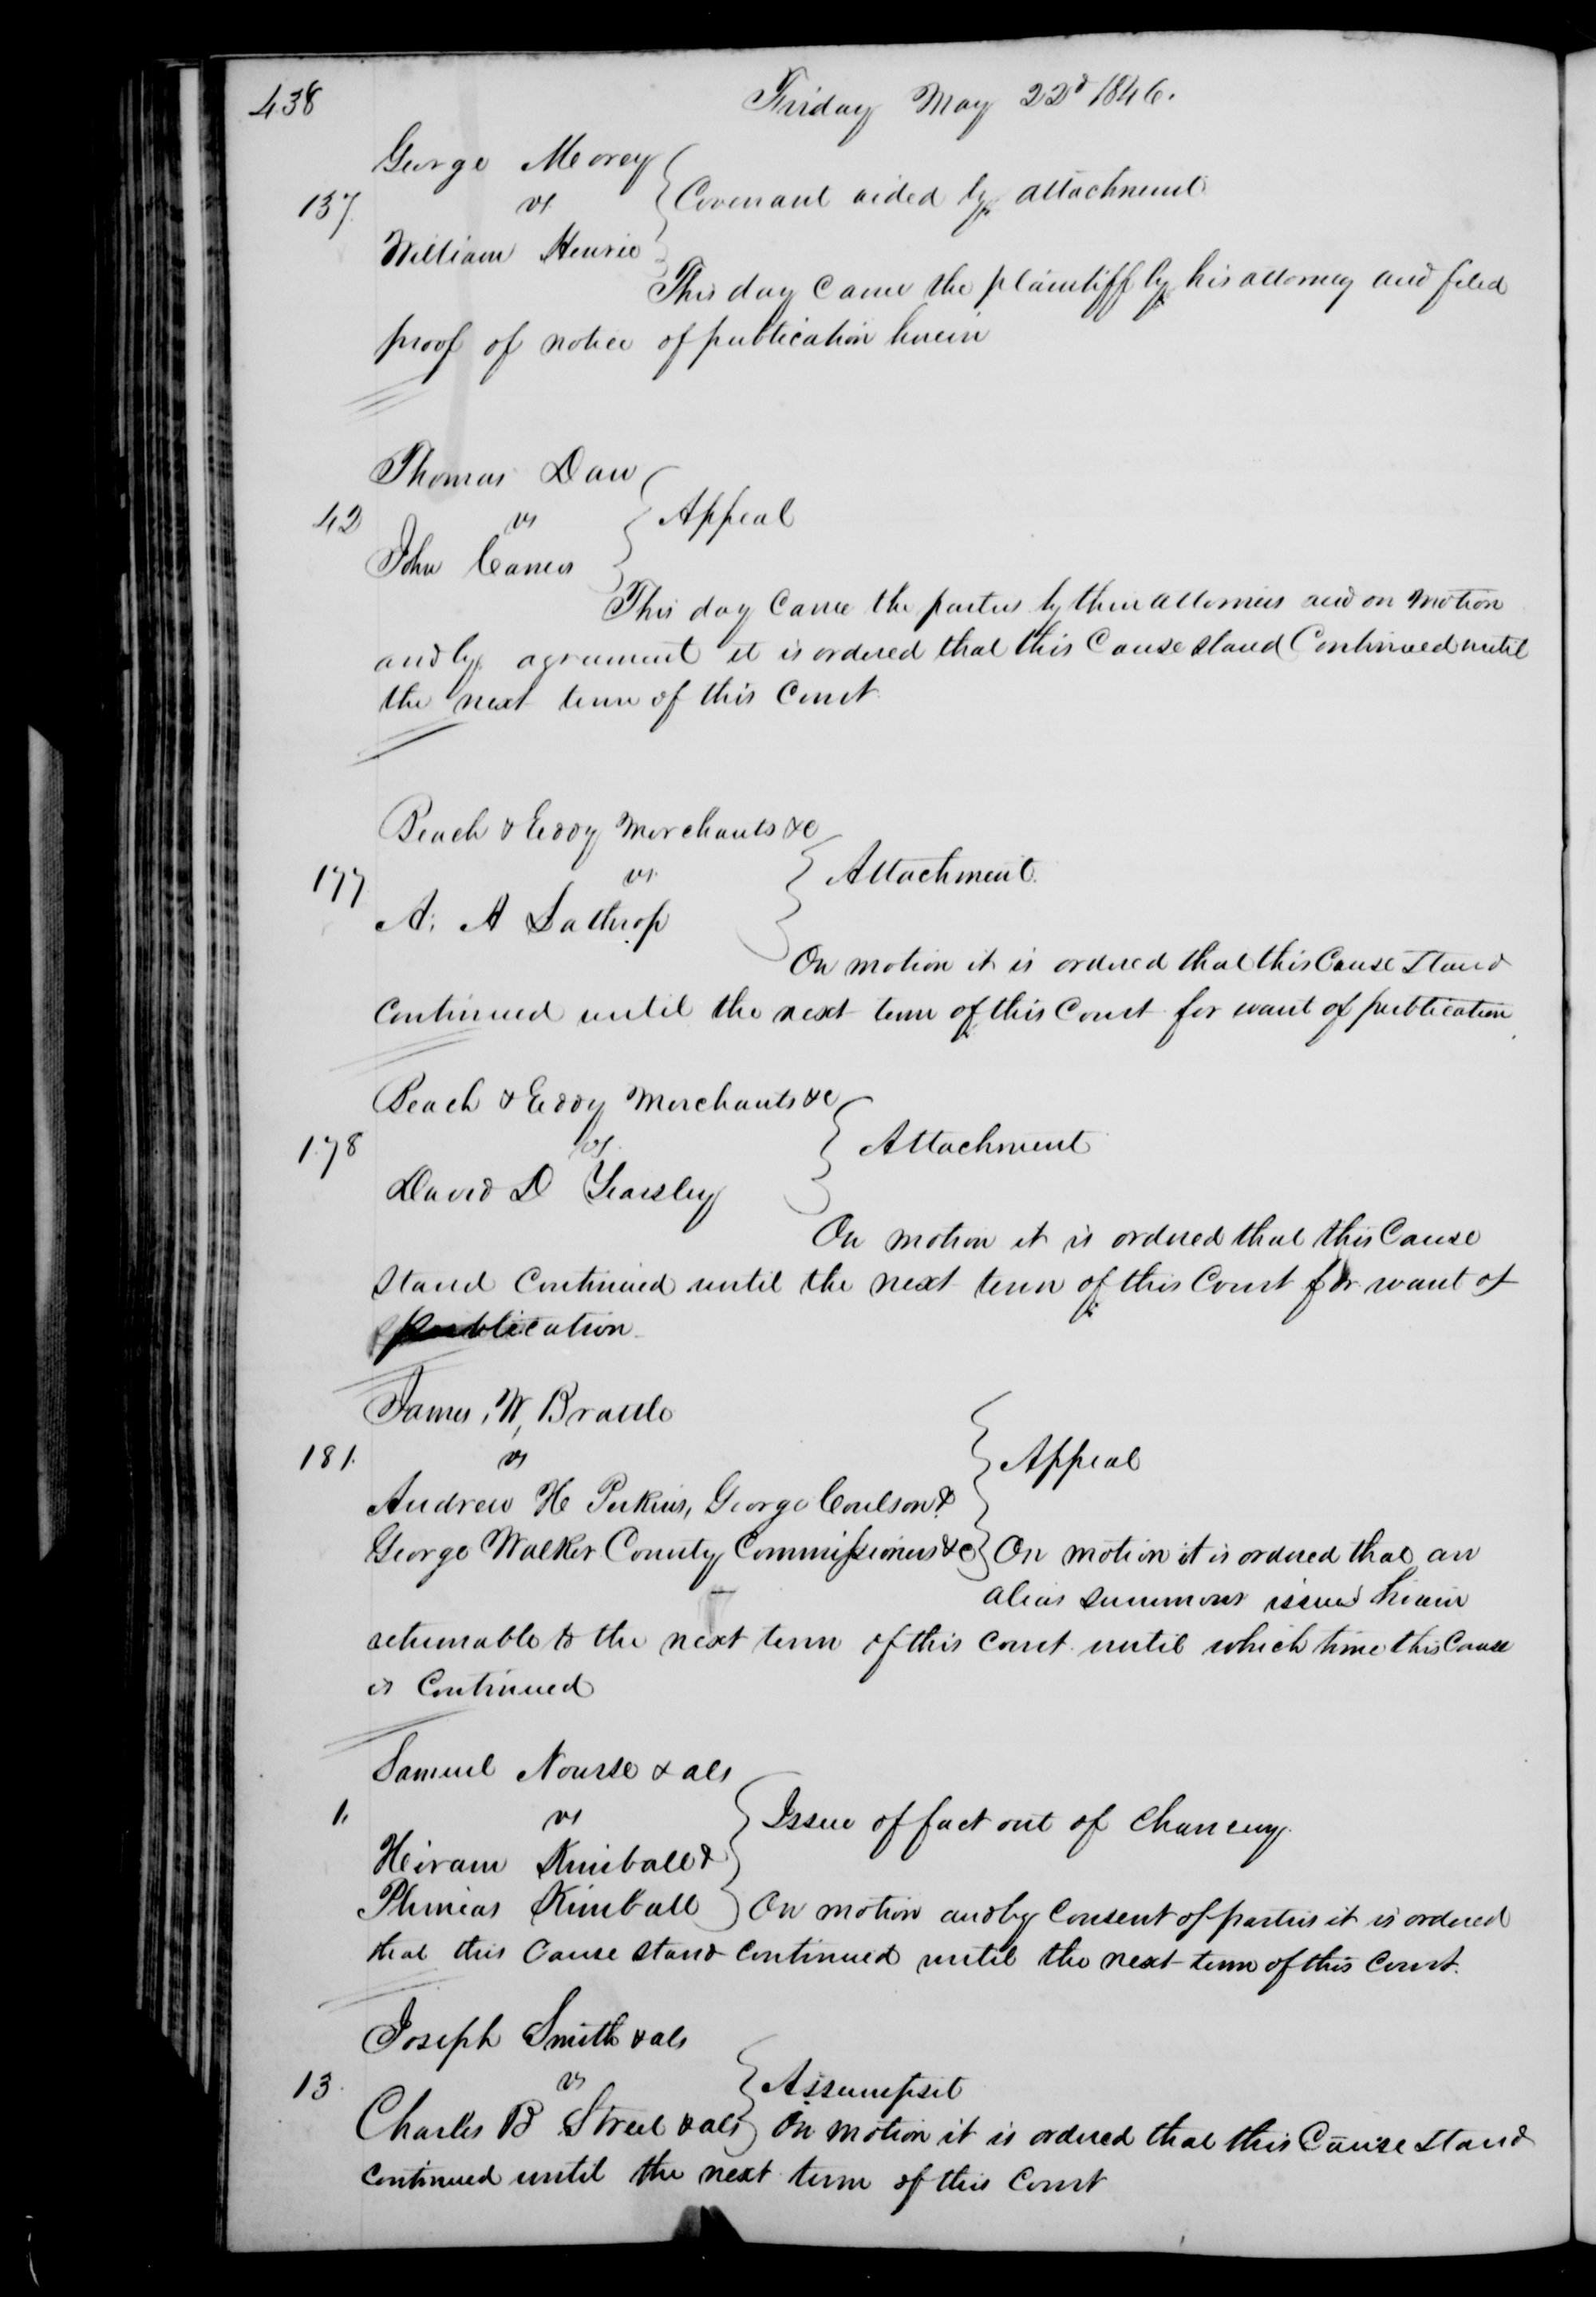 438
Friday May 22d 1846.
George Morey
137. vs Covenant aided by attachment
William Henrie
This day came the plaintiff by his attorney and filed
proof of notice of publication herein
Thomas Daw
42 vs Appeal
John
This day came the parties by their attornies and on motion
and by agreement it is ordered that this Cause stand Continued until
the next term of this Court
Beach & Eddy Merchants &c
177 vs. Attachment.
A. A Lathrop
On motion it is ordered that this Cause stand
continued until the next term of this Court for want of publication
Beach & Eddy Merchants &c
178 vs. Attachment
David D Yearsley
On motion it is ordered that this Cause
stand continued until the next term of this Court for want of
publication
James, W, Brattle
181. vs Appeal
Andrew H Perkins, George Coulson &
George Walker County Commissioners &c On motion it is ordered that an
alias summons issued herein
returnable to the next term of this court until which time this Cause
is Continued
Samuel Nourse & als
1. vs Issue of fact out of Chancery.
Heiram Kimball &
Phineas Kimball On motion and by consent of parties it is ordered
that this Cause stand continued until the next term of this Court.
Joseph Smith & als
13. vs Assumpsit
Charles B Street & als On motion it is ordered that this Cause stand
continued until the next term of this Court